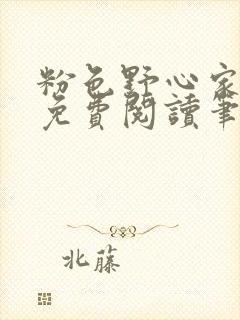 粉色野心家
免費閱讀筆
北藤